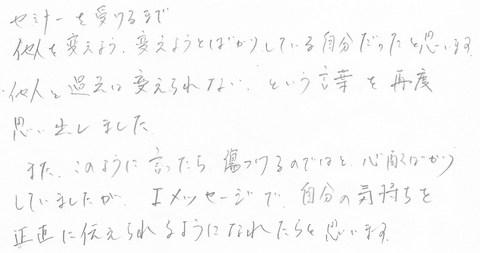 セミナーを受けるまで
他人を変えよう、変えようとばかりしている自分だったと思います。
"他人と過去は変えられない"という言葉を再度
思い出しました
また、このように言ったら傷つけるのではと、心配ばかり
していましたが、Iメッセージで、自分の気持ちを
正直に伝えられるようになれたらと思います。